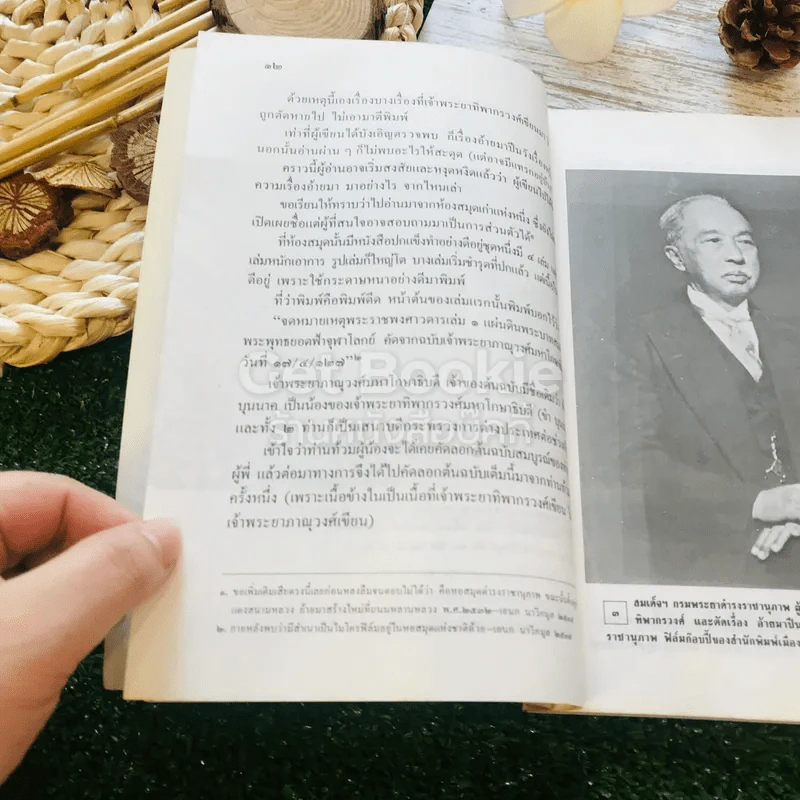 ๑๒
ด้วยเหตุนี้เองเรื่องบางเรื่องที่เจ้าพระยาทิพากรวงศ์เขียนมา
ถูกตัดหายไป ไม่เอามาตีพิมพ์
เท่าที่ผู้เขียนได้บังเอิญตรวจพบ ก็เรื่องอ้ายมาปีนวัง
นอกนั้นอ่านผ่าน ๆ ก็ไม่พบอะไรให้สะดุด (แต่อาจมีแทรกอยู่
คราวนี้ผู้อ่านอาจเริ่มสงสัยและหงุดหงิดแล้วว่า ผู้เขียนไปได้
ความเรื่องอ้ายมา มาอย่างไร จากไหนเล่า
ขอเรียนให้ทราบว่าไปอ่านมาจากห้องสมุดเก่าแห่งหนึ่ง
เปิดเผยชื่อแต่ผู้ที่สนใจอาจสอบถามมาเป็นการส่วนตัวได้
ที่ห้องสมุดนั้นมีหนังสือปกแข็งทำอย่างดีอยู่ชุดหนึ่งมี ๔ เล่ม
เล่มหนักเอาการ รูปเล่มก็ใหญ่โต บางเล่มเริ่มชำรุดที่ปกแล้ว
ดีอยู่ เพราะใช้กระดาษหนาอย่างดีมาพิมพ์
ที่ว่าพิมพ์คือพิมพ์ดีด หน้าต้นของเล่มแรกนั้นพิมพ์บอกไว้
“จดหมายเหตุพระราชพงศาวดารเล่ม ๑ แผ่นดินพระบาท
พระพุทธยอดฟ้าจุฬาโลกย์ คัดจากฉบับเจ้าพระยาภาณุวงศ์มหาโกษา
วันที่ ๑๗/๔/๑๒๗”๒
เจ้าพระยาภาณุวงศ์มหาโกษาธิบดี เจ้าของต้นฉบับมีชื่อเดิมว่า
บุนนาค เป็นน้องของเจ้าพระยาทิพากรวงศ์มหาโกษาธิบดี (ขำ
และทั้ง ๒ ท่านก็เป็นเสนาบดีกระทรวงการต่างประเทศต่อช่วง
เข้าใจว่าท่านท้วมผู้น้องจะได้เคยคัดลอกต้นฉบับสมบูรณ์ของ
ผู้พี่ แล้วต่อมาทางการจึงได้ไปคัดลอกต้นฉบับเต็มนี้มาจากท่านท้วม
ครั้งหนึ่ง (เพราะเนื้อข้างในเป็นเนื้อที่เจ้าพระยาทิพากรวงศ์เขียน
เจ้าพระยาภาณุวงศ์เขียน)
๑. ขอเพิ่มเติมเสียตรงนี้เลยก่อนหลงลืมจนตอบไม่ได้ว่า คือหอสมุดดำรงราชานุภาพ
แดงสนามหลวง ย้ายมาสร้างใหม่ที่ถนนหลานหลวง พ.ศ.๒๕๓๒-เอนก นาวิกมูล
๒. ภายหลังพบว่ามีสำเนาเป็นไมโครฟิล์มอยู่ในหอสมุดแห่งชาติด้วย-เอนก นาวิกมูล
๓
สมเด็จฯ กรมพระยาดำรงราชานุภาพ
ทิพากรวงศ์ และตัดเรื่อง อ้ายมาปีน
ราชานุภาพ ฟิล์มก๊อปปี้ของสำนักพิมพ์เมือง
Get Bookie
ร้านหนังสือบุ๊คกี้